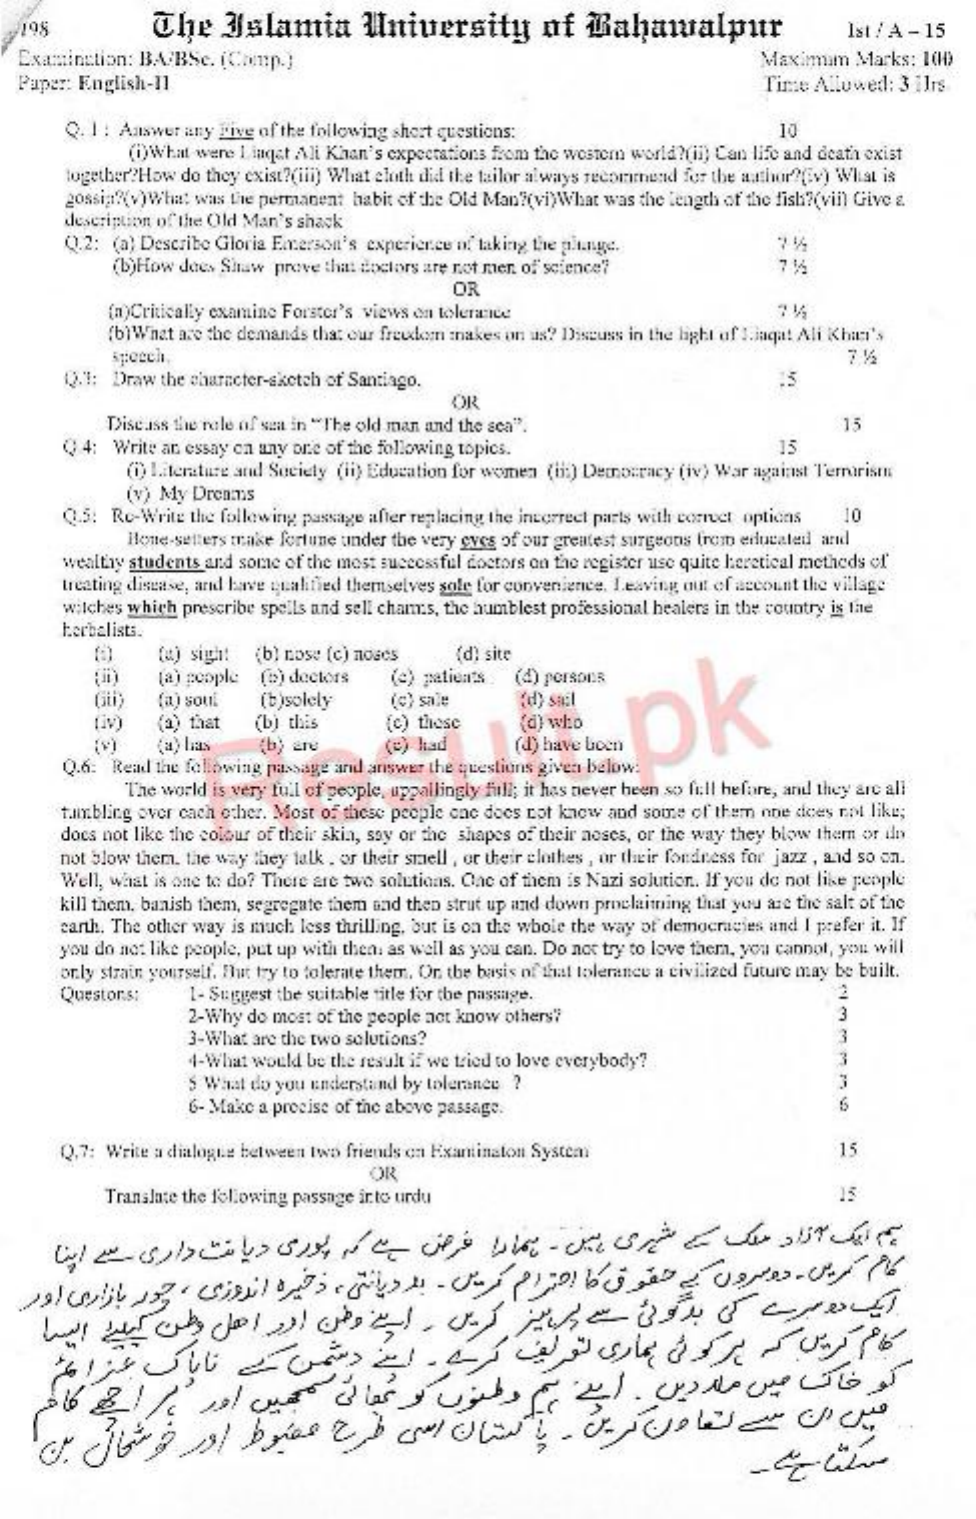 198 The Islamia University of Bahawalpur Ist / A – 15
Examination: BA/BSc. (Comp.) Maximum Marks: 100
Paper: English-II Time Allowed: 3 Hrs
Q. 1 : Answer any Five of the following short questions: 10
(i)What were Liaqat Ali Khan's expectations from the western world?(ii) Can life and death exist
together?How do they exist?(iii) What cloth did the tailor always recommend for the author?(iv) What is
gossip?(v)What was the permanent habit of the Old Man?(vi)What was the length of the fish?(vii) Give a
description of the Old Man's shack
Q.2: (a) Describe Gloria Emerson's experience of taking the plunge. 7 ½
(b)How does Shaw prove that doctors are not men of science? 7 ½
OR
(a)Critically examine Forster's views on tolerance 7 ½
(b)What are the demands that our freedom makes on us? Discuss in the light of Liaqat Ali Khan's
speech. 7 ½
Q.3: Draw the character-sketch of Santiago. 15
OR
Discuss the role of sea in "The old man and the sea". 15
Q.4: Write an essay on any one of the following topics. 15
(i) Literature and Society (ii) Education for women (iii) Democracy (iv) War against Terrorism
(v) My Dreams
Q.5: Re-Write the following passage after replacing the incorrect parts with correct options 10
Bone-setters make fortune under the very eyes of our greatest surgeons from educated and
wealthy students and some of the most successful doctors on the register use quite heretical methods of
treating disease, and have qualified themselves sole for convenience. Leaving out of account the village
witches which prescribe spells and sell charms, the humblest professional healers in the country is the
herbalists.
(i) (a) sight (b) nose (c) noses (d) site
(ii) (a) people (b) doctors (c) patients (d) persons
(iii) (a) soul (b)solely (c) sale (d) sail
(iv) (a) that (b) this (c) these (d) who
(v) (a) has (b) are (c) had (d) have been
Q.6: Read the following passage and answer the questions given below:
The world is very full of people, appallingly full; it has never been so full before, and they are all
tumbling over each other. Most of these people one does not know and some of them one does not like;
does not like the colour of their skin, say or the shapes of their noses, or the way they blow them or do
not blow them, the way they talk , or their smell , or their clothes , or their fondness for jazz , and so on.
Well, what is one to do? There are two solutions. One of them is Nazi solution. If you do not like people
kill them, banish them, segregate them and then strut up and down proclaiming that you are the salt of the
earth. The other way is much less thrilling, but is on the whole the way of democracies and I prefer it. If
you do not like people, put up with them as well as you can. Do not try to love them, you cannot, you will
only strain yourself. But try to tolerate them. On the basis of that tolerance a civilized future may be built.
Questons: 1- Suggest the suitable title for the passage. 2
2-Why do most of the people not know others? 3
3-What are the two solutions? 3
4-What would be the result if we tried to love everybody? 3
5 What do you understand by tolerance ? 3
6- Make a precise of the above passage. 6
Q.7: Write a dialogue between two friends on Examinaton System 15
OR
Translate the following passage into urdu 15
ہم ایک آزاد ملک کے شہری ہیں۔ ہمارا فرض ہے کہ پوری دیانت داری سے اپنا
کام کریں۔ دوسروں کے حقوق کا احترام کریں۔ بددیانتی، ذخیرہ اندوزی، چور بازاری اور
ایک دوسرے کی بدگوئی سے پرہیز کریں۔ اپنے وطن اور اہل وطن کیلئے ایسا
کام کریں کہ ہر کوئی ہماری تعریف کرے۔ اپنے دشمن کے ناپاک عزائم
کو خاک میں ملا دیں۔ اپنے ہم وطنوں کو بھائی سمجھیں اور ہر اچھے کام
میں ان سے تعاون کریں۔ پاکستان اسی طرح مضبوط اور خوشحال بن
سکتا ہے۔
Result.pk